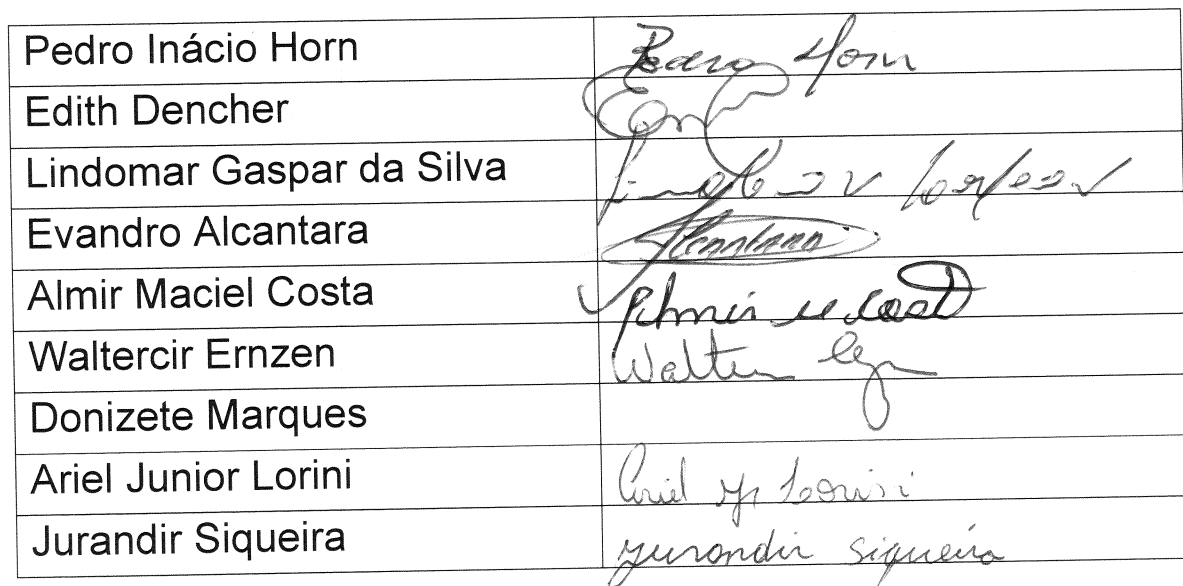 Pedro Inácio Horn Pedro Horn
Edith Dencher
Lindomar Gaspar da Silva
Evandro Alcantara
Almir Maciel Costa Almir M Costa
Waltercir Ernzen
Donizete Marques
Ariel Junior Lorini Ariel Jr Lorini
Jurandir Siqueira Jurandir Siqueira